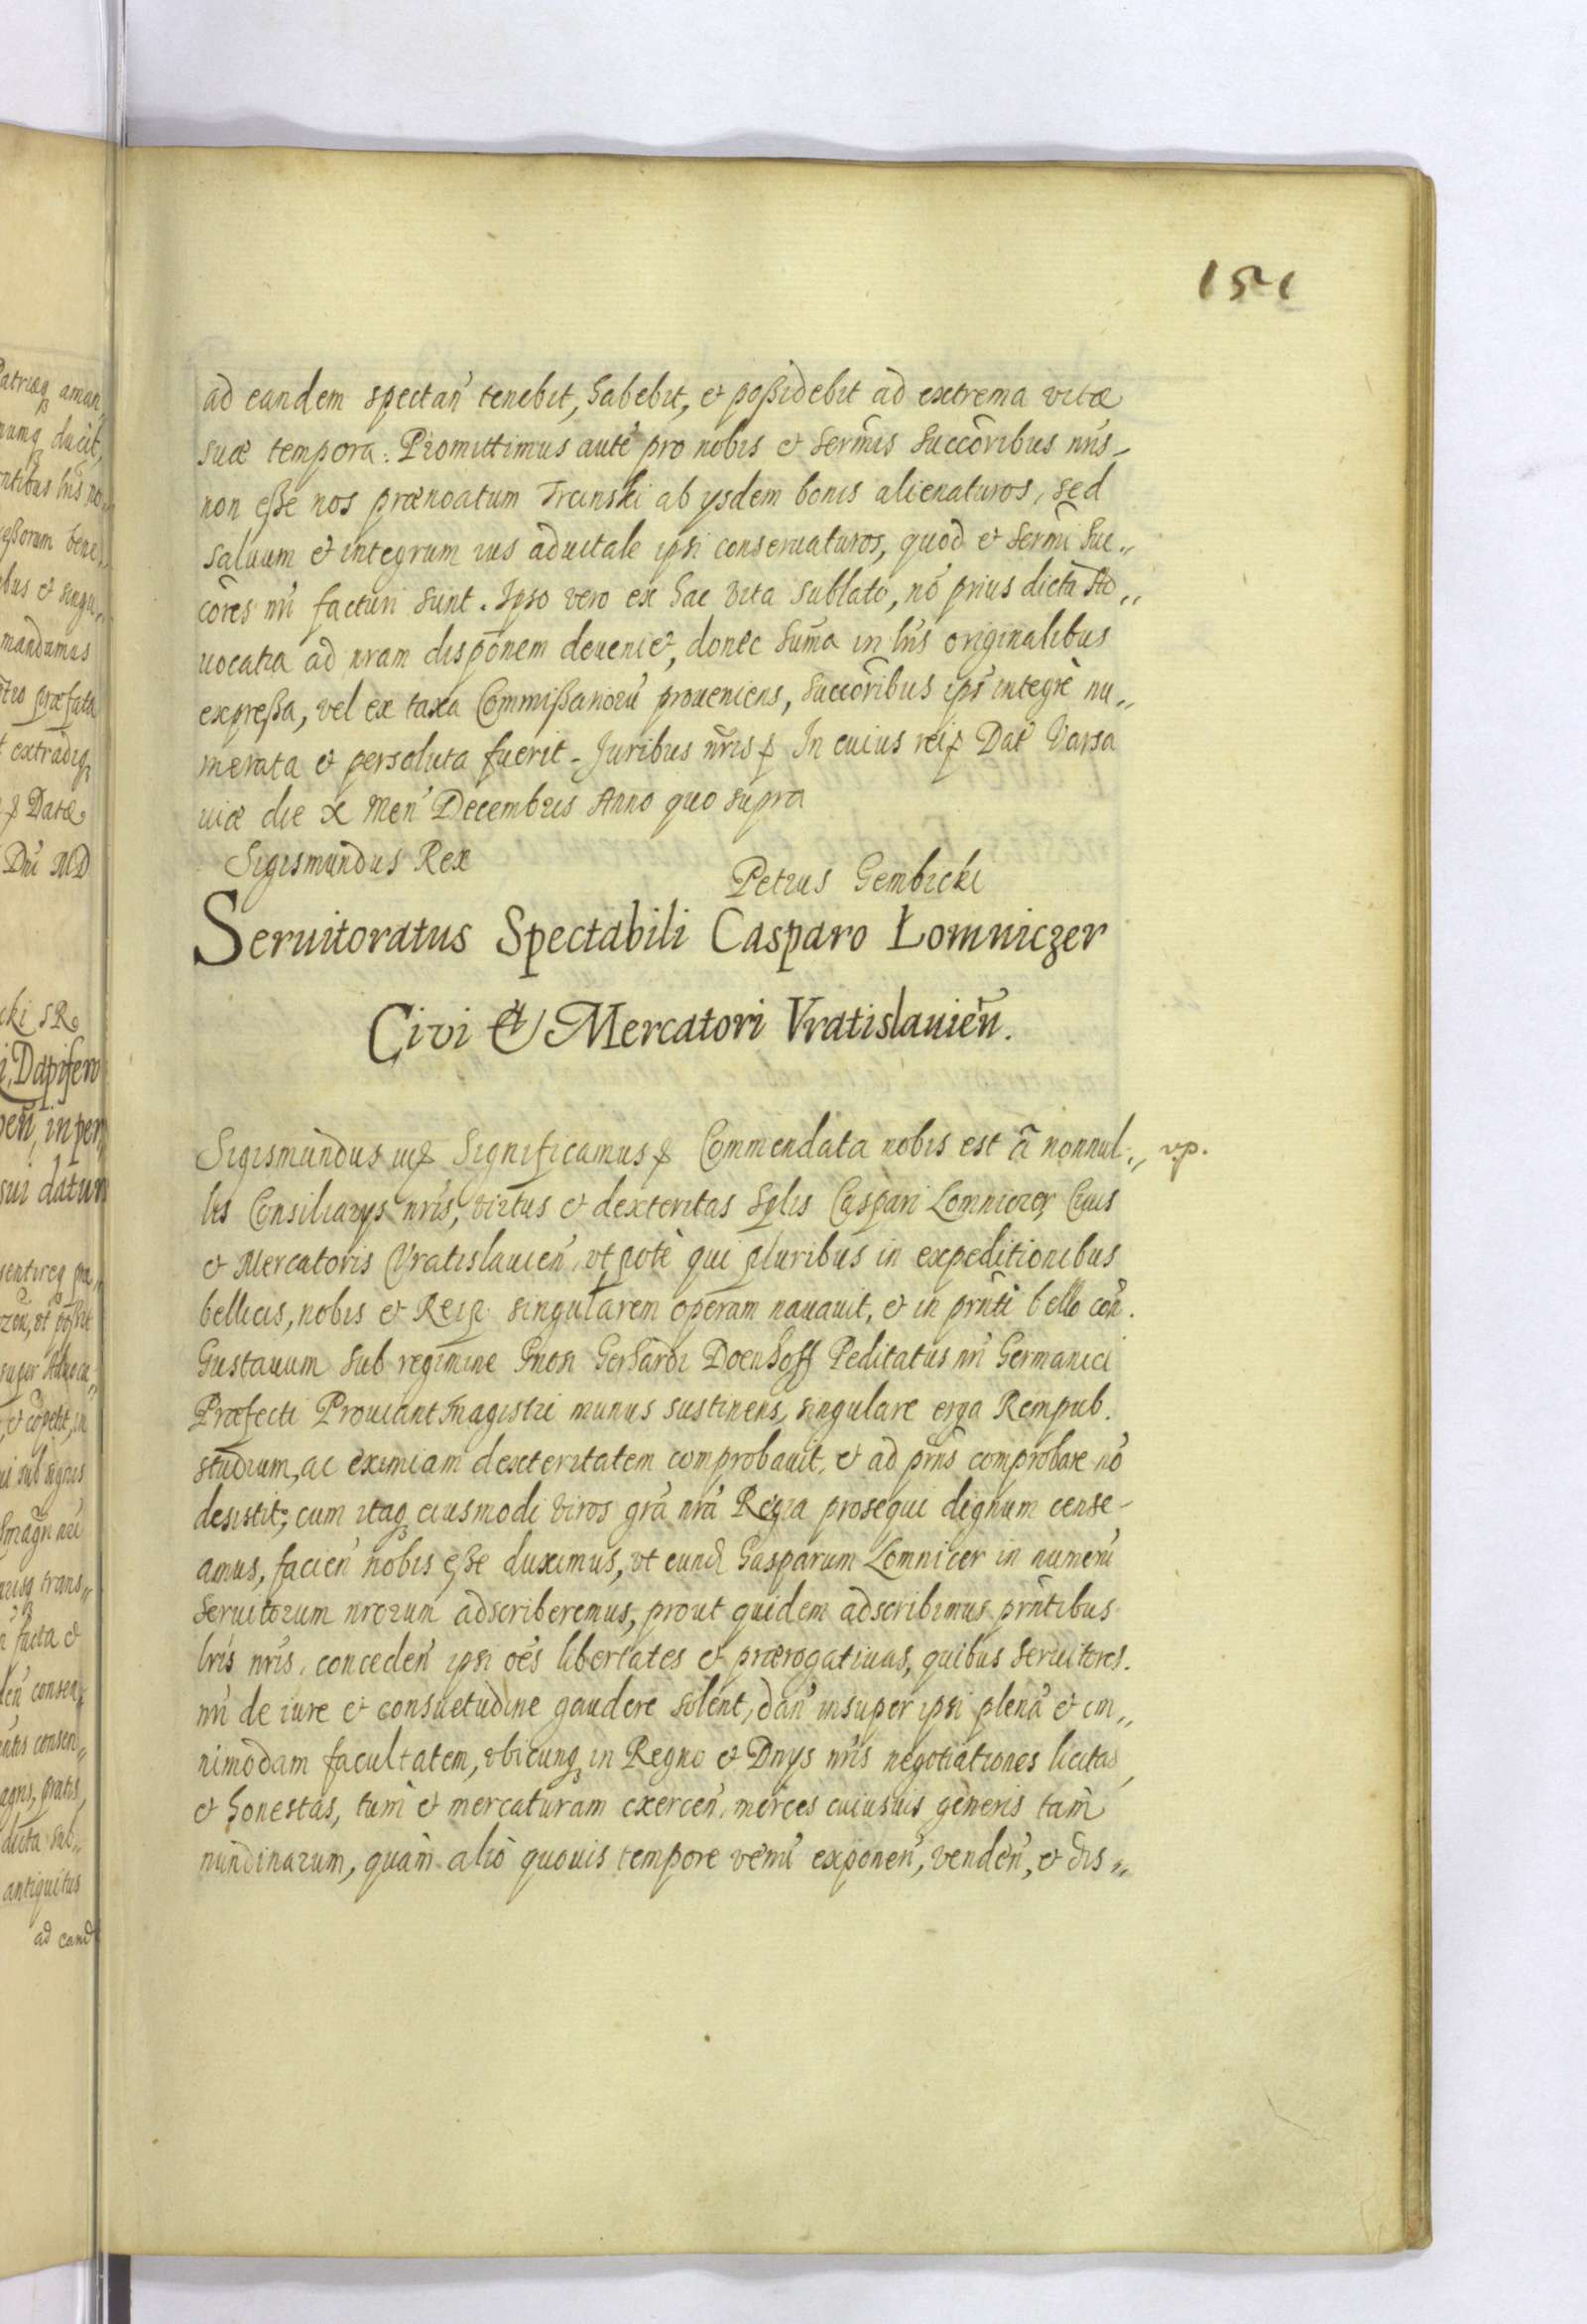 151
ad eandem spectan̄ tenebit, habebit, et poßidebit ad extrema vitæ
suæ tempora. Promittimus autē pro nobis et Sermis Succōribus nr̄is
non eße nos prænoatum Trcinski ab ysdem bonis alienaturos, sed
saluum et integrum ius aduitale ipsi conseruaturos, quod et Sermi Suc„
cōres nr̄i facturi sunt. Ipso vero ex hac vita sublato, nō prius dicta Ad„
uocatia ad nram dispōnem deueniet, donec sum̄a in lr̄is originalibus
expreßa, vel ex taxa Commißariorū proueniens, succōribus ips̄ integrè nu„
merata et persoluta fuerit. Juribus nr̄is ꝑ In cuius rei ꝑ Dat̄ Varsa
uiæ die X Men̄ Decembris Anno quo supra
Sigismundus Rex
Petrus Gembicki
Seruitoratus Spectabili Casparo Łomniczer
Civi & Mercatori Vratislauien̄.
Sigismundus iiiꝑ Significamus ꝑ Commendata nobis est à nonnul„ vp.
lis Consiliarys nr̄is, virtus et dexteritas Splis Caspari Lomniczer, Ciuis
et Mercatoris Vratislauien̄, vt potè qui pluribus in expeditionibus
bellicis, nobis et Reip. singularem operam nauauit, et in prn̄ti bello con̄.
Gustauum sub regimine Gnosi Gerhardi Doenhoff Peditatus nr̄i Germanici
Præfecti Prouiant Magistri munus sustinens, singulare erga Rempub.
studium, ac eximiam dexteritatem comprobauit, et ad prn̄s comprobare nō
desistit; cum itaqꝫ eiusmodi viros grā nrā Regia prosequi dignum cense-
amus, facien̄ nobis eße duximus, vt eund̄ Gasparum Lomnicer in numerū
Seruitorum nrorum adscriberemus, prout quidem adscribimus prn̄tibus
lr̄is nr̄is, conceden̄ ipsi oēs libertates et prærogatiuas, quibus seruitores.
nr̄i de iure et consuetudine gaudere solent, dan̄ insuper ipsi plenā et om„
nimodam facultatem, vbicunqꝫ in Regno et Dnys nr̄is negotiationes licitas
et honestas, tum et mercaturam exercen̄, merces cuiusuis generis tam
nundinarum, quàm alio quouis tempore venū exponen̄, venden̄, et dis„